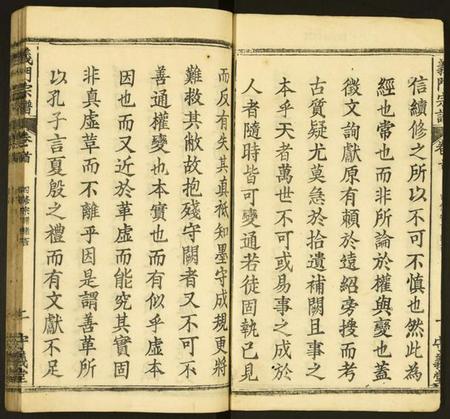 義門宗譜
卷首
信續修之所以不可不慎也然此為
經也常也而非所論於權與變也蓋
徵文詢獻原有賴於遠紹旁搜而考
古質疑尤莫急於拾遺補闕且事之
本乎天者萬世不可或易事之成於
人者隨時皆可變通若徒固執己見
而反有失其真祗知墨守成規更將
難救其敝故抱殘守闕者又不可不
善通權變也本實也而有似乎虛本
因也而又近於革虛而能究其實固
非真虛革而不離乎因是謂善革所
以孔子言夏殷之禮而有文獻不足
義門宗譜
卷首
守義堂